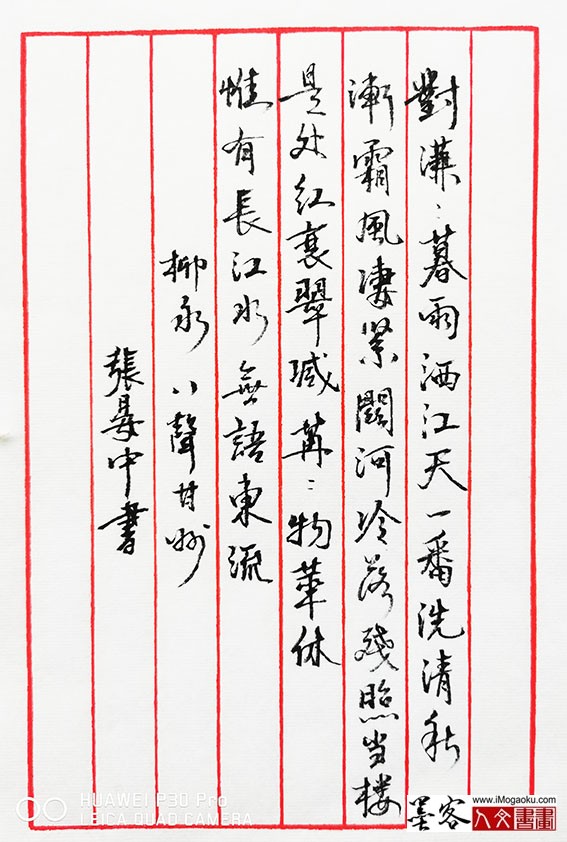 對潇〻暮雨洒江天一番洗清秋
漸霜風凄緊關河冷落殘照当楼
是处红衰翠减苒〻物華休
惟有長江水無語東流
柳永八聲甘州
張中書
HUAWEI P30 Pro
LEICA QUAD CAMERA
墨客
www.iMogaoku.com
人文書畫